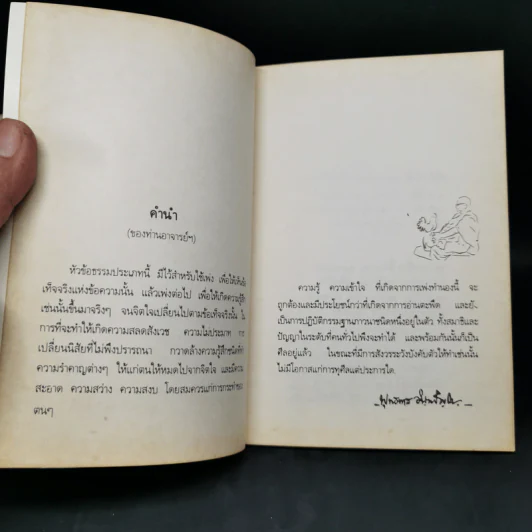 คำนำ
(ของท่านอาจารย์ฯ)
หัวข้อธรรมประเภทนี้ มีไว้สำหรับใช้เพ่ง เพื่อให้เห็น
เท็จจริงแห่งข้อความนั้น แล้วเพ่งต่อไป เพื่อให้เกิดความรู้สึก
เช่นนั้นขึ้นมาจริงๆ จนจิตใจเปลี่ยนไปตามข้อเท็จจริงนั้น ใน
การที่จะทำให้เกิดความสลดสังเวช ความไม่ประมาท การ
เปลี่ยนนิสัยที่ไม่พึงปรารถนา กวาดล้างความรู้สึกชนิดที่
ความรำคาญต่างๆ ให้แก่ตนให้หมดไปจากจิตใจ และมีความ
สะอาด ความสว่าง ความสงบ โดยสมควรแก่การกระทำของ
ตนๆ
ความรู้ ความเข้าใจ ที่เกิดจากการเพ่งทำนองนี้ จะ
ถูกต้องและมีประโยชน์กว่าที่เกิดจากการอ่านตะพืด และยัง
เป็นการปฏิบัติกรรมฐานภาวนาชนิดหนึ่งอยู่ในตัว ทั้งสมาธิและ
ปัญญาในระดับที่คนทั่วไปพึงจะทำได้ และพร้อมกันนั้นก็เป็น
ศีลอยู่แล้ว ในขณะที่มีการสังวรระวังบังคับตัวให้ทำเช่นนั้น
ไม่มีโอกาสแก่การทุศีลแต่ประการใด